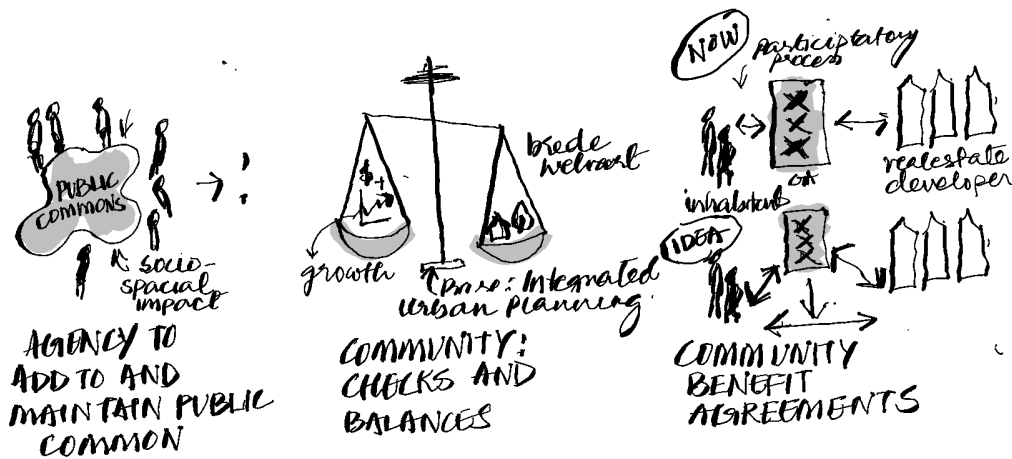 PUBLIC
COMMONS
socio-
spacial
impact
AGENCY TO
ADD TO AND
MAINTAIN PUBLIC
COMMON
$+
growth
brede
welvaart
Base: Integrated
urban planning.
COMMUNITY:
CHECKS AND
BALANCES
NOW
participatory
process
XXX
inhabitants
real estate
developer
IDEA
XXX
COMMUNITY
BENEFIT
AGREEMENTS